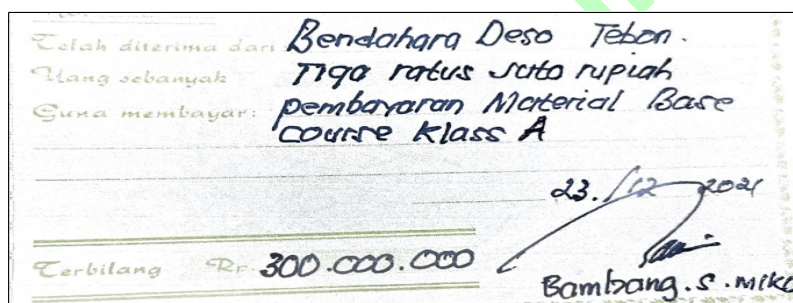 Telah diterima dari Bendahara Deso Tebon.
Uang sebanyak Tiga ratus Juta rupiah
Guna membayar: pembayaran Material Base
course Klass A
23./12 2021
Terbilang Rp. 300.000.000
Bambang.S.Miko